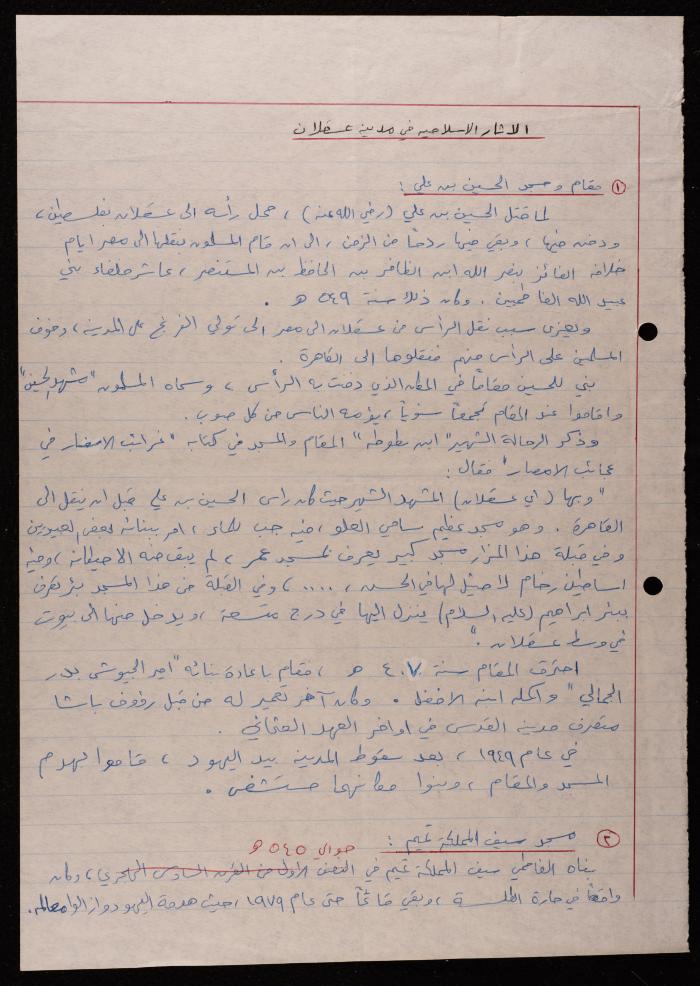 الاثار الاسلامية في مدينة عسقلان
١ مقام ومسجد الحسين بن علي :
لما قتل الحسين بن علي (رضي الله عنه) ، حمل رأسه الى عسقلان بفلسطين ،
ودفن فيها ، وبقي فيها ردحاً من الزمن ، الى ان قام المسلمون بنقلها الى مصر ايام
خلافة الفائز بنصر الله ابن الظافر بن الحافظ بن المستنصر ، عاشر خلفاء بني
عبيد الله الفاطميين . وكان ذلك سنة ٥٤٩ هـ .
ويعزى سبب نقل الرأس من عسقلان الى مصر الى تولي الفرنج على المدينة ، وخوف
المسلمين على الرأس منهم فنقلوها الى القاهرة .
بني للحسين مقاماً في المكان الذي دفنت به الرأس ، وسماه المسلمون "مشهد الحسين"
واقاموا عند المقام تجمعاً سنوياً ، يؤمه الناس من كل صوب .
وذكر الرحالة الشهير "ابن بطوطة" المقام والمسجد في كتابه "غرائب الامصار في
عجائب الامصار" فقال :
"وبها (اي عسقلان) المشهد الشهير حيث كان راس الحسين بن علي قبل ان ينقل الى
القاهرة . وهو مسجد عظيم سامي العلو ، فيه جب للماء ، امر ببنائه بعض العبيديين
وفي قبلة هذا المزار مسجد كبير يعرف بمسجد عمر ، لم يبق منه الا حيطانه ، وفيه
اساطين رخام لا مثيل لها في الحسن ، .... ، وفي القبلة من هذا المسجد بئر تعرف
ببئر ابراهيم (عليه السلام) ينزل اليها في درج متسعة ، ويدخل منها الى بيوت
في وسط عسقلان ."
احترق المقام سنة ٤٠٧ هـ ، فقام باعادة بنائه "امير الجيوش بدر
الجمالي" واكمله ابنه الافضل . وكان آخر تعمير له من قبل رؤوف باشا
متصرف مدينة القدس في اواخر العهد العثماني .
في عام ١٩٤٩ ، بعد سقوط المدينة بيد اليهود ، قاموا بهدم
المسجد والمقام ، وبنوا مكانهما مستشفى .
٢ مسجد سيف المملكة تميم : حوالي ٥٤٥ هـ
بناه الفاطمي سيف المملكة تميم في النصف الاول من القرن السادس الهجري ، وكان
واقعاً في حارة الطلسة ، وبقي قائماً حتى عام ١٩٧٩ ، حيث هدمه اليهود وازالوا معالمه .